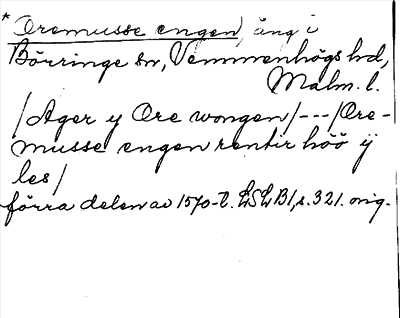 * Oremusse engen, äng i
Börringe sn, Vemmenhögs hd,
Malm. l.
/Ager y Ore wongen/---/Ore-
musse engen rentir höö ij
les/
förra delen av 1570-t. LSLB1, s. 321. orig.